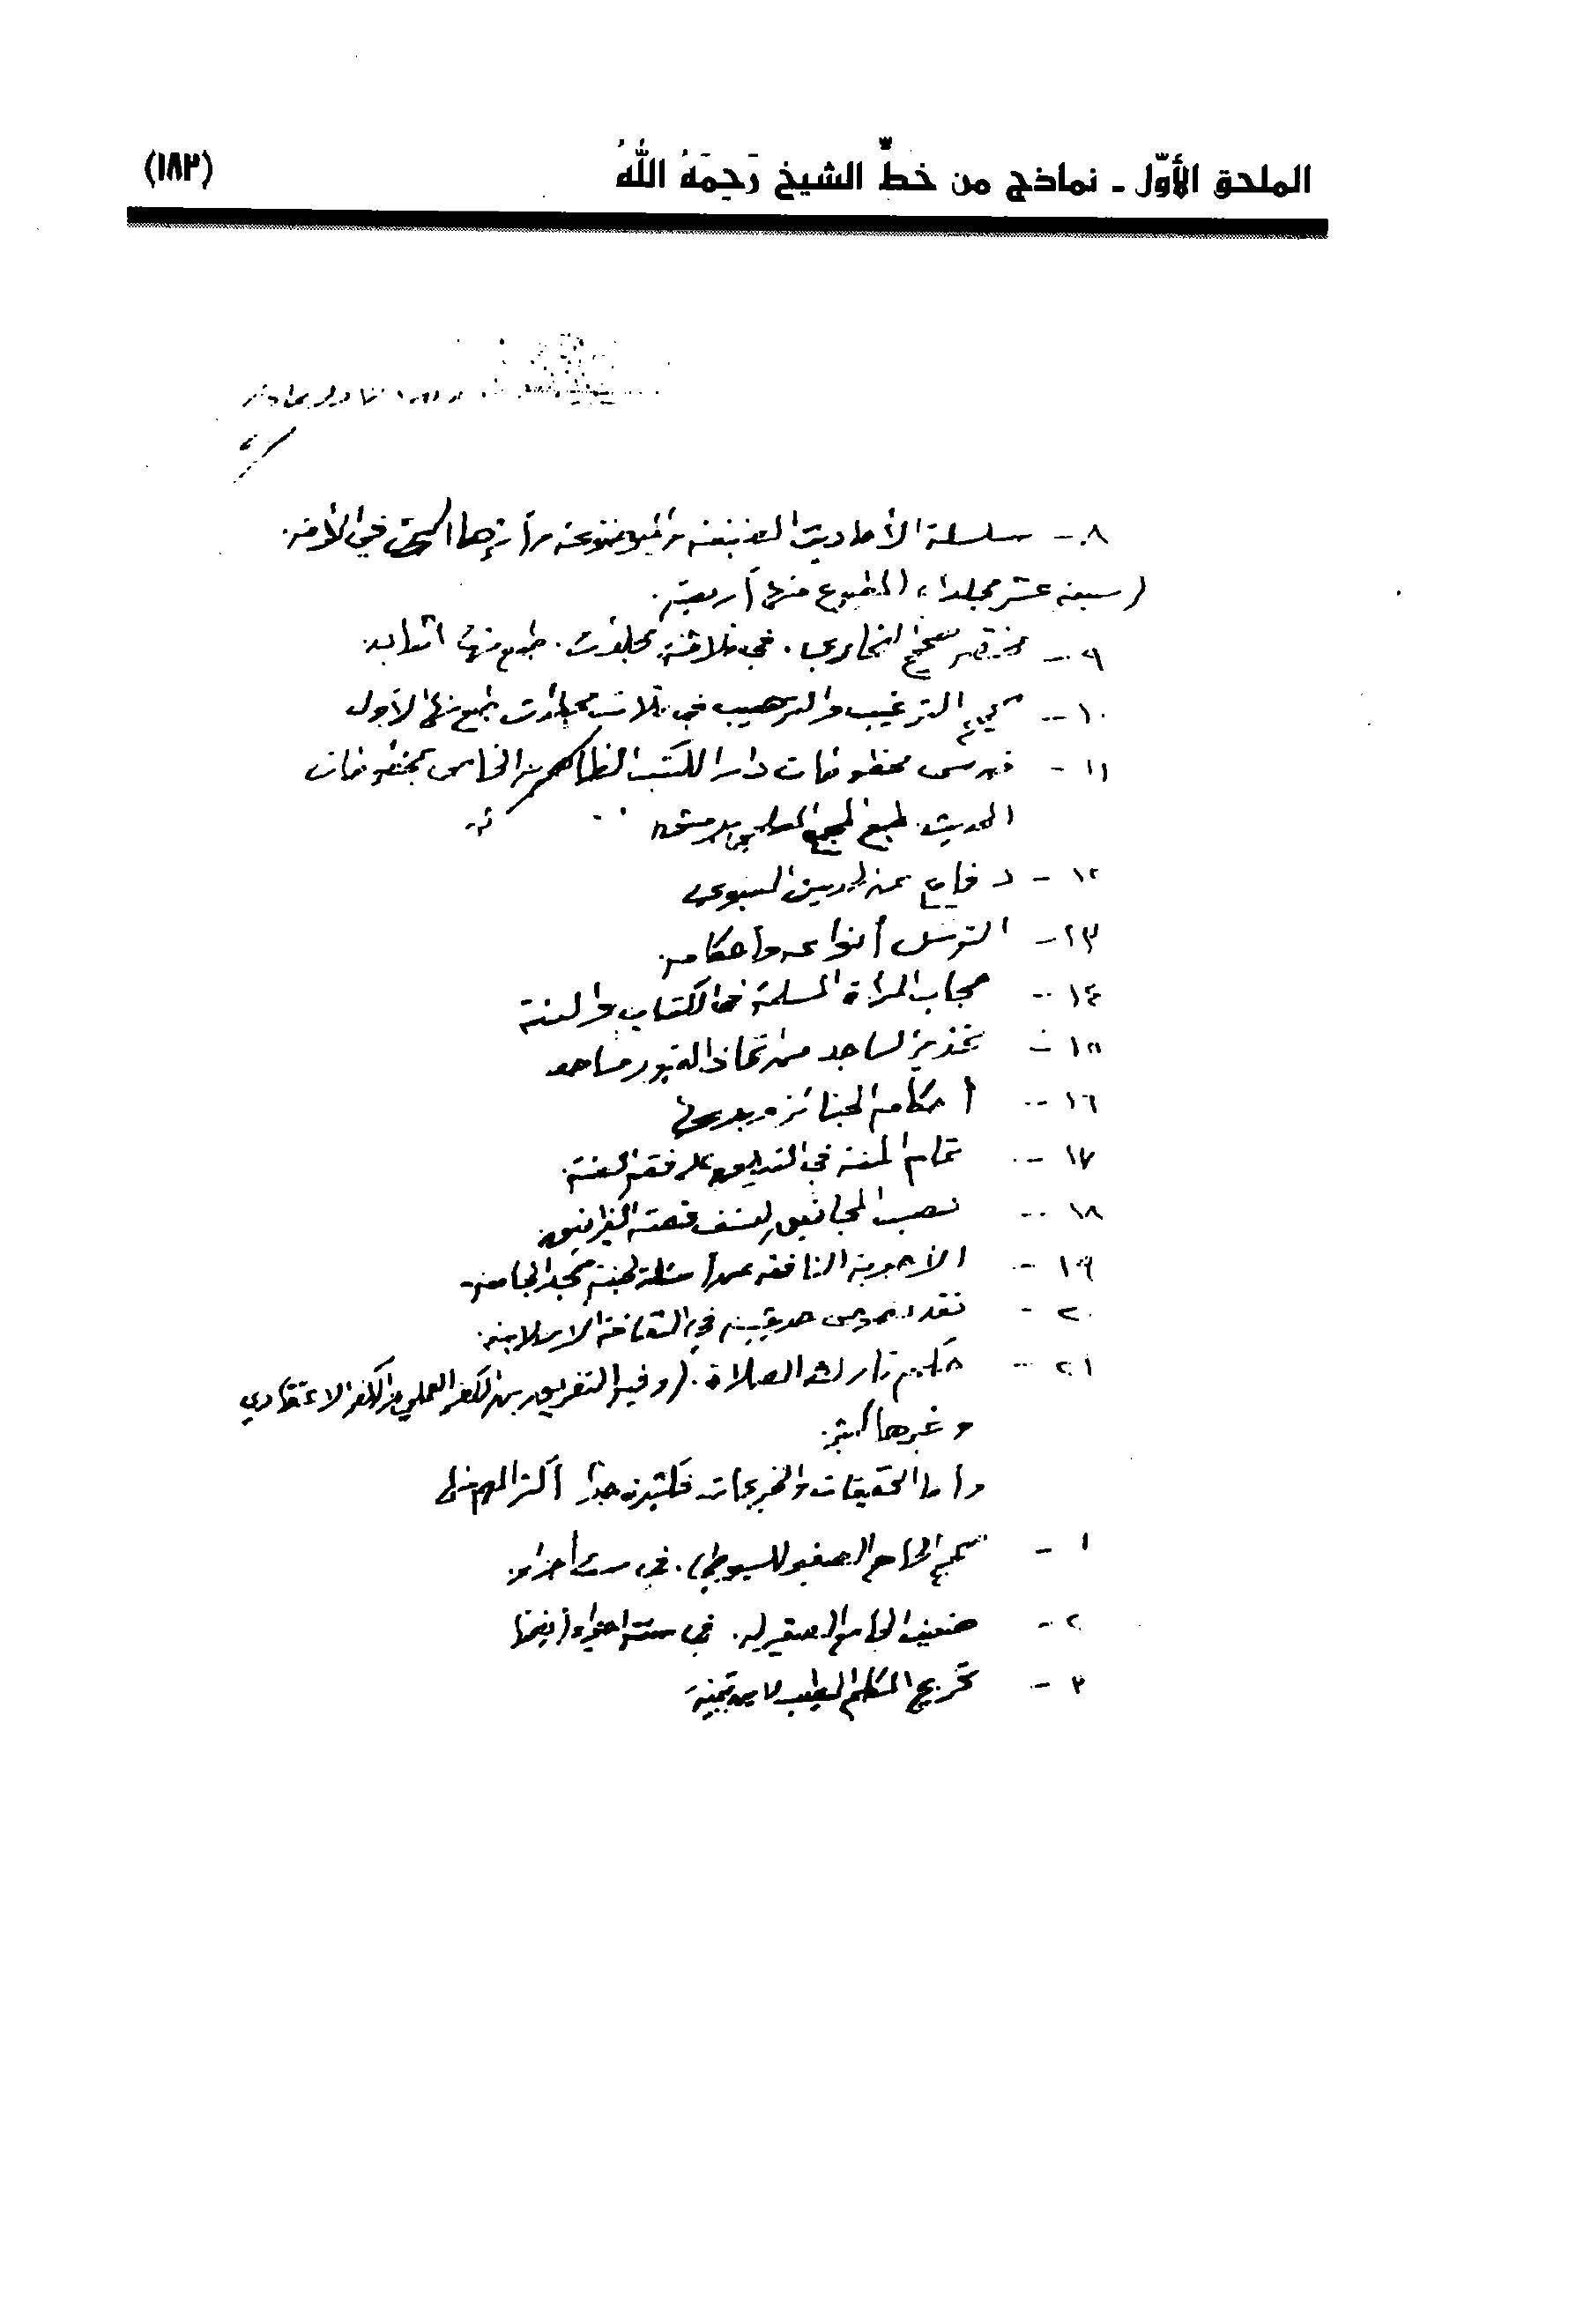 الملحق الأوّل - نماذج من خطِّ الشيخ رَحِمَهُ اللهُ
(١٨٣)
٨- سلسلة الأحاديث الضعيفة والموضوعة وأثرها السيئ في الأمة.
(سبعة عشر مجلدا) المطبوع منها أربعة.
٩- مختصر صحيح البخاري. في ثلاثة مجلدات. طبع منها
١٠- صحيح الترغيب والترهيب في ثلاث مجلدات طبع منها الأول
١١- فهرس مخطوطات دار الكتب الظاهرية الخاص بمخطوطات
الحديث. طبع المجمع العلمي بدمشق
١٢- دفاع عن الحديث النبوي
١٣- التوسل أنواعه وأحكامه
١٤- حجاب المرأة المسلمة في الكتاب والسنة
١٥- تحذير الساجد من اتخاذ القبور مساجد
١٦- أحكام الجنائز وبدعها
١٧- تمام المنة في التعليق على فقه السنة
١٨- نصب المجانيق لنسف قصة الغرانيق
١٩- الأجوبة النافعة عن أسئلة لجنة مسجد الجامعة
٢٠- نقد نصوص حديثية في الثقافة الاسلامية
٢١- حكم تارك الصلاة. (وفيه التفريق بين الكفر العملي والكفر الاعتقادي
وغيرها كثير
وأما التحقيقات والتخريجات فكثيرة جداً أكثر المهم منها
١- صحيح الجامع الصغير للسيوطي. في ستة أجزاء
٢- ضعيف الجامع الصغير له. في ستة أجزاء أيضا
٣- تخريج الكلم الطيب لابن تيمية